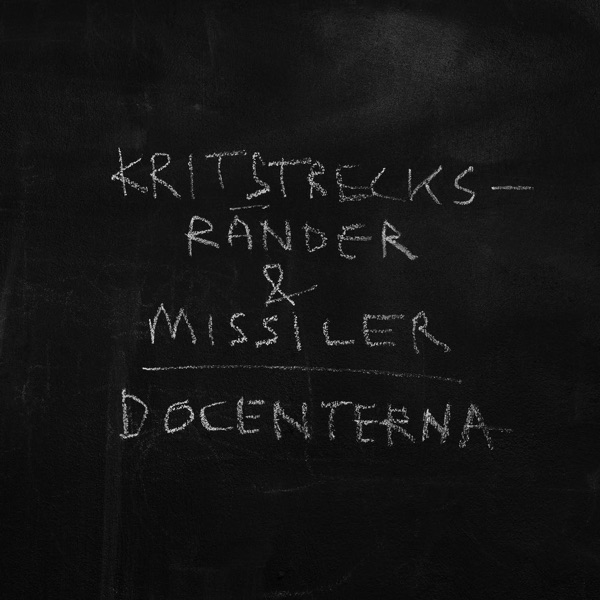 KRITSTRECKS-
RÄNDER
&
MISSILER
DOCENTERNA